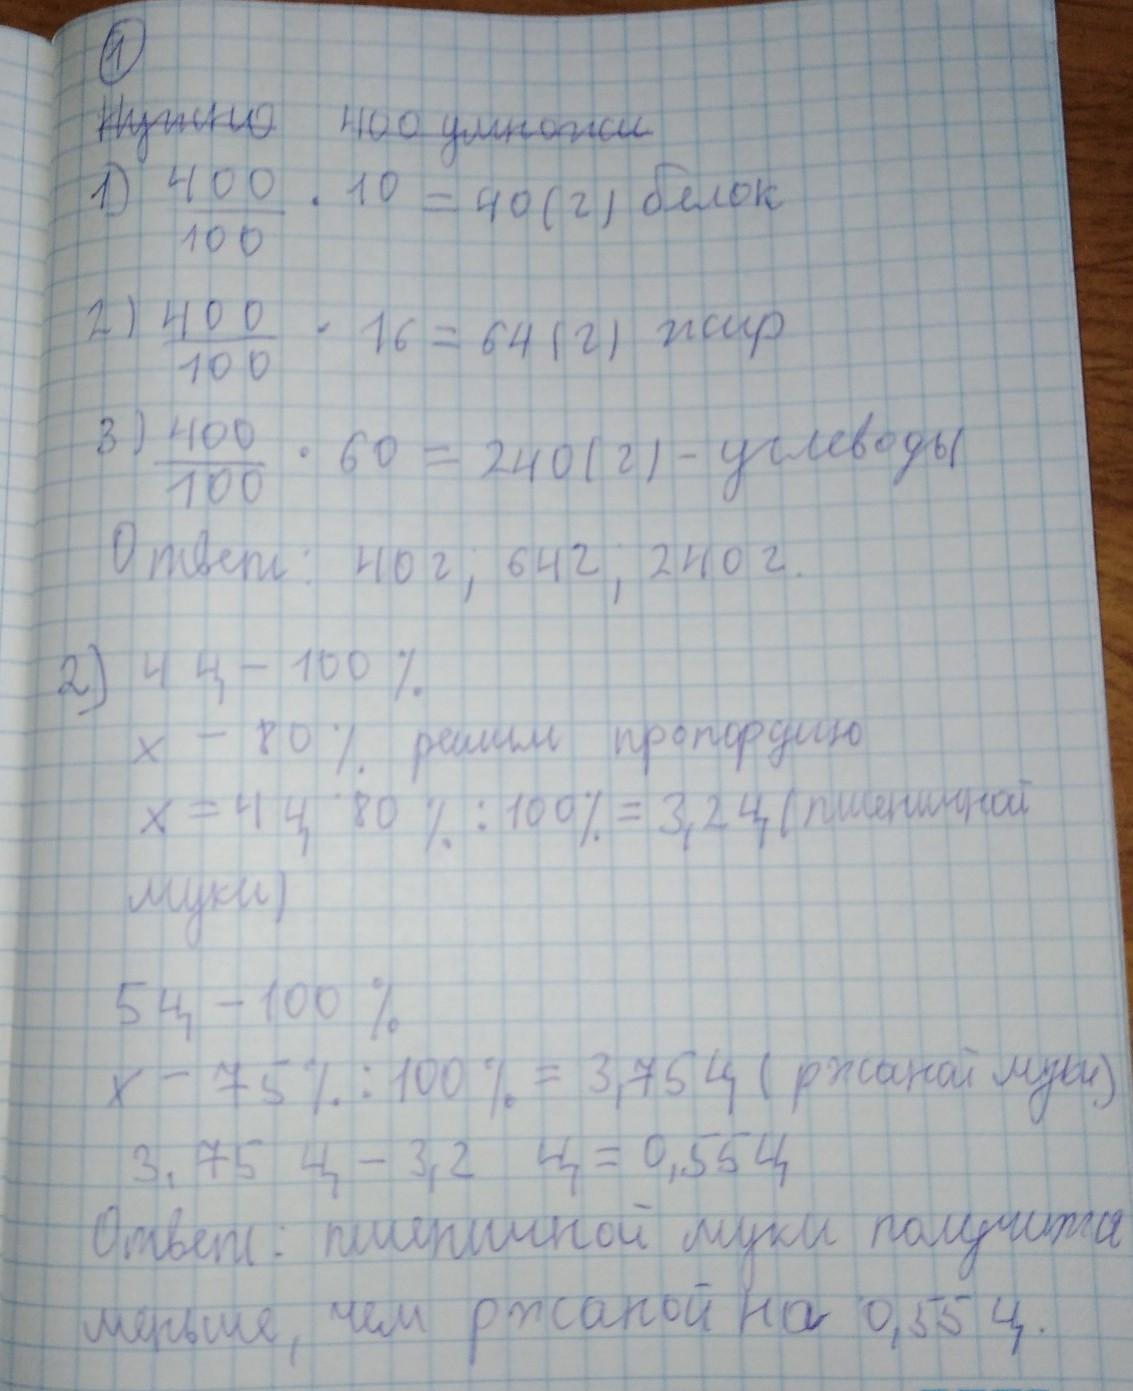 1
Нужно 400 умножи
1) 400/100 · 10 = 40 (г) белок
2) 400/100 · 16 = 64 (г) жир
3) 400/100 · 60 = 240 (г) - углеводы
Ответ: 40 г; 64 г; 240 г.
2) 4 ц - 100 %
х - 80 % решим пропорцию
х = 4 ц · 80 % : 100% = 3,2 ц (пшеничной
муки)
5 ц - 100 %
х - 75 % : 100 % = 3,75 ц (ржаной муки)
3.75 ц - 3,2 ц = 0,55 ц
Ответ: пшеничной муки получится
меньше, чем ржаной на 0,55 ц.